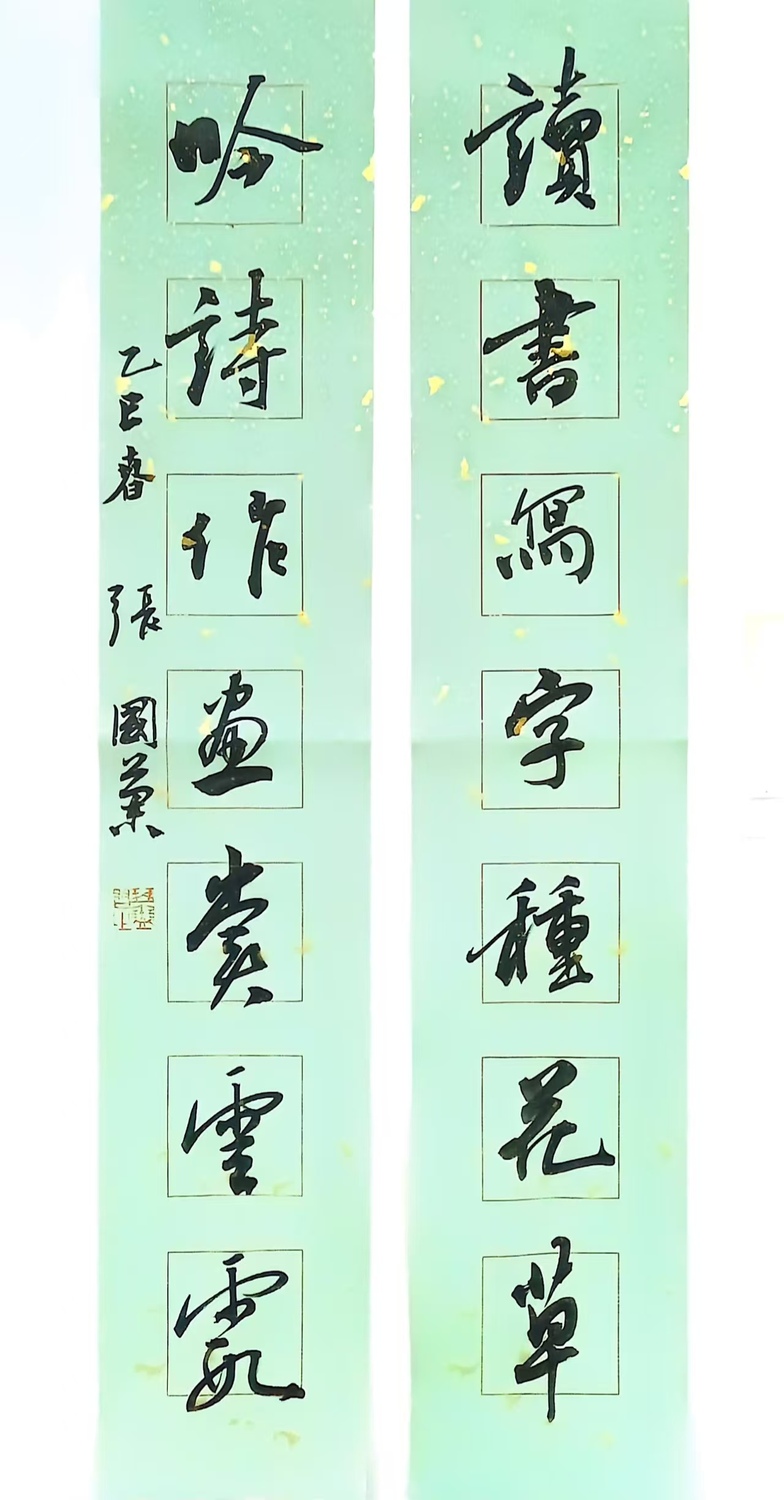 讀書寫字種花草
吟詩作畫賞雲霞
乙巳春 張國業